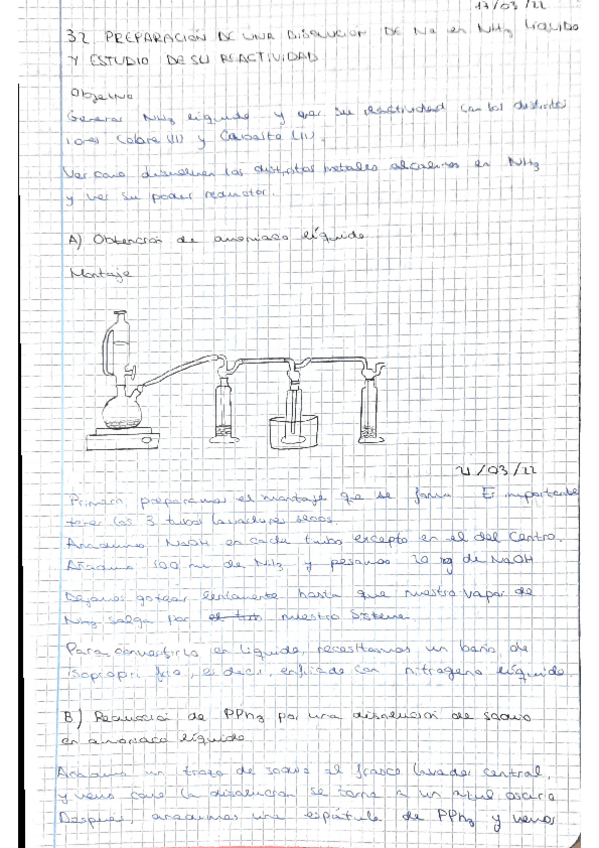 17/03/22
32 PREPARACIÓN DE UNA DISOLUCION DE Na en NH3 LíQUIDO
Y ESTUDIO DE SU REACTIVIDAD
Objetivo
Generar NH3 líquido y ver su reactividad con los distintos
iones Cobre (II) y Cobalto (II).
Ver como disuelven los distintos metales alcalinos en NH3
y ver su poder reductor.
A) Obtención de amoniaco líquido
Montaje
21/03/22
Primero preparamos el montaje que se forma Es importante
tener los 3 tubos lavadores secos.
Añadimos NaOH en cada tubo excepto en el del centro.
Añadimos 100 mL de NH3 y pesamos 20 g de NaOH
Dejamos gotear lentamente hasta que nuestro vapor de
NH3 salga por nuestro sistema.
Para convertirlo en líquido, necesitamos un baño de
isopropi frío, es decir, enfriado con nitrogeno líquido.
B) Reducción de PPh3 por una disolución de sodio
en amoniaco líquido
Añadimos un trozo de sodio al frasco lavador central,
y vemos como la disolución se torna a un azul oscuro
Después, añadimos una espátula de PPh3 y vemos